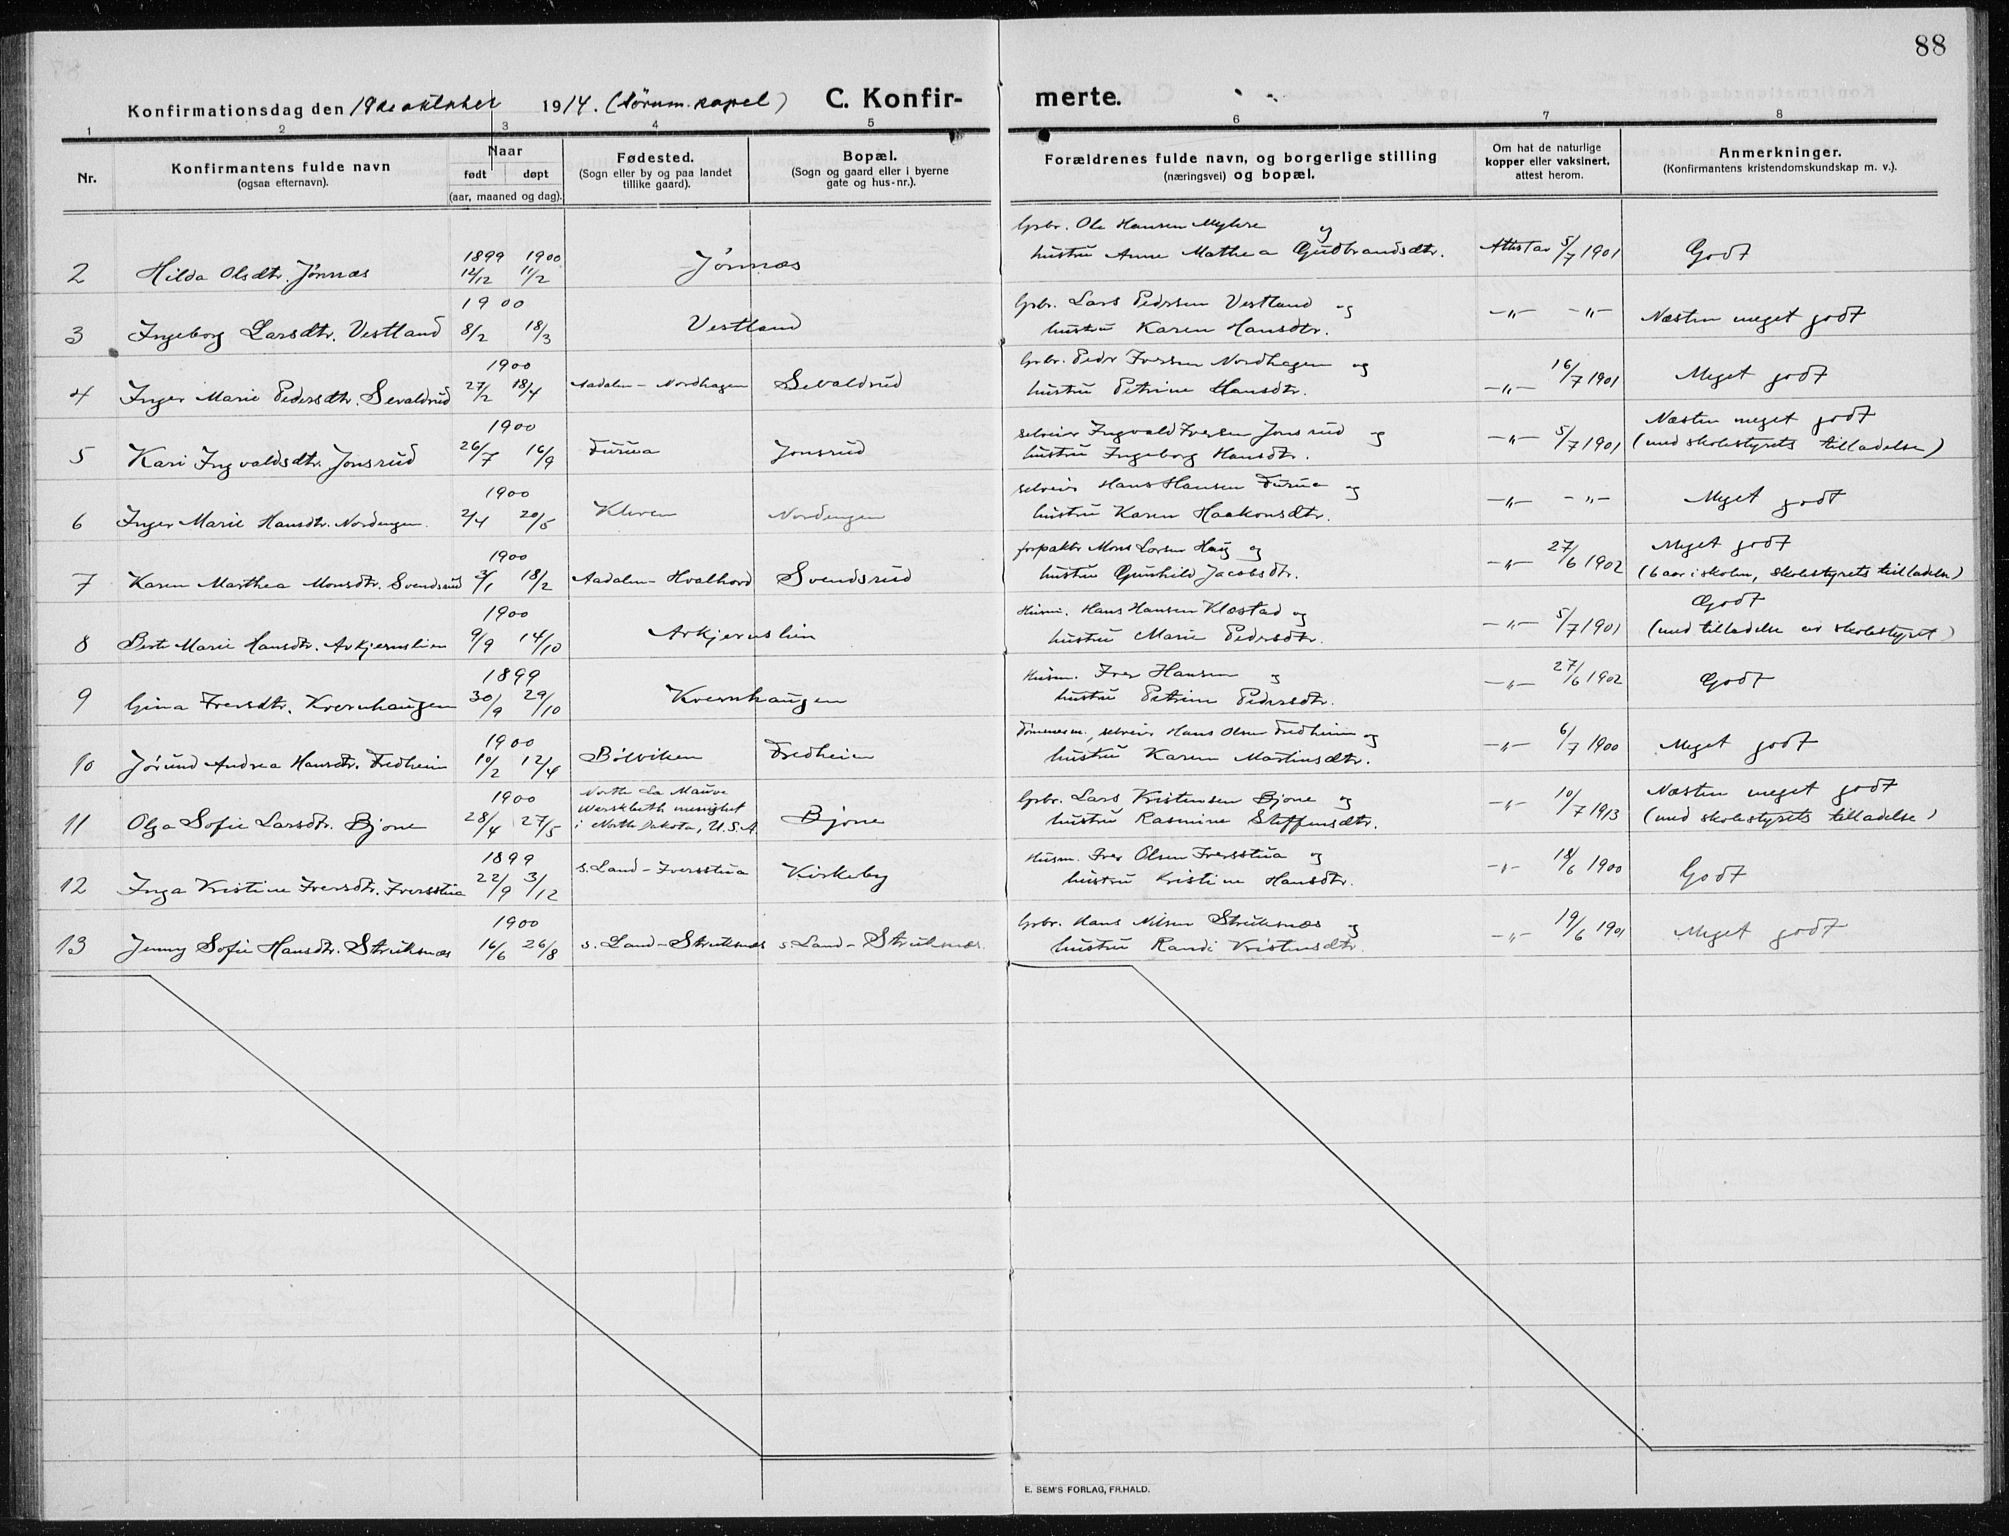 88
Konfirmationsdag den 19de oktober 1914. (Sørum kapel) C. Konfir-merte.
1 2 3 4 5 6 7 8
Nr.
Konfirmantens fulde navn
(ogsaa efternavn).
Naar
født døpt
(aar, maaned og dag).
Fødested.
(Sogn eller by og paa landet
tillike gaard).
Bopæl.
(Sogn og gaard eller i byerne
gate og hus-nr.).
Forældrenes fulde navn, og borgerlige stilling
(næringsvei) og bopæl.
Om hat de naturlige
kopper eller vaksinert,
attest herom.
Anmerkninger.
(Konfirmantens kristendomskundskap m. v.).
Gpbr. Ole Hansen Myhre og
1899 1900
2 Hilda Olsdtr. Jønnæs 12/12 11/2 Jønnæs hustru Anne Mathea Gudbrandsdtr. Attest av 5/7 1901 Godt
1900 Gpbr. Lars Pedersen Vestland og
3 Ingeborg Larsdtr. Vestland 8/2 18/3 Vestland hustru Karen Hansdtr. -"- -"- Næsten meget godt
1900 Gpbr. Peder Iversen Nordhagen og
4 Inger Marie Pedersdtr. Sevaldrud 27/2 18/4 Aadalen - Nordhagen Sevaldrud hustru Petrine Hansdtr. -"- 16/7 1901 Meget godt
1900 selveier Ingvald Iversen Jonsrud og Næsten meget godt
5 Kari Ingvaldsdtr. Jonsrud 26/7 16/9 Furua Jonsrud hustru Ingeborg Hansdtr. -"- 5/7 1901 (med skolestyrets tilladelse)
1900 selveier Hans Hansen Furua og
6 Inger Marie Hansdtr. Nordengen. 2/4 20/5 Kleven Nordengen hustru Karen Haakonsdtr. -"- -"- Meget godt
1900 forpakter Mons Larsen Haug og Meget godt
7 Karen Marthea Monsdtr. Svendsrud 3/1 18/2 Aadalen - Hvalhord Svendsrud hustru Gunhild Jacobsdtr. -"- 27/6 1902 (6 aar i skolen, skolestyrets tilladelse)
1900 Husm. Hans Hansen Klæstad og Godt
8 Berte Marie Hansdtr. Avkjernslien 9/9 14/10 Avkjernslien hustru Marie Pedersdtr. -"- 5/7 1901 (med tilladelse av skolestyret)
1899 Husm. Iver Hansen og
9 Gina Iversdtr. Kvernhaugen 30/9 29/10 Kvernhaugen hustru Petrine Pedersdtr. -"- 27/6 1902 Godt
1900 Tømmerm., selveier Hans Olsen Fredheim og
10 Jørund Andrea Hansdtr. Fredheim 10/2 12/4 Bølviken Fredheim hustru Karen Martinsdtr. -"- 6/7 1900 Meget godt
1900 North La Mauve Gpbr. Lars Kristensen Bjone og Næsten meget godt
11 Olga Sofie Larsdtr. Bjone 28/4 27/5 menighet i North Dakota, U.S.A. Bjone hustru Rasmine Steffensdtr. -"- 10/7 1913 (med skolestyrets tilladelse)
1899 Husm. Iver Olsen Iversstua og
12 Inga Kristine Iversdtr. Iversstua 22/9 3/12 s. Land - Iversstua Kirkeby hustru Kristine Hansdtr. -"- 18/6 1900 Godt
1900 Gpbr. Hans Nilsen Struksnæs og
13 Jenny Sofie Hansdtr. Struksnæs 16/6 26/8 s. Land - Struksnæs s. Land - Struksnæs. hustru Randi Kristensdtr. -"- 19/6 1901 Meget godt
E. SEM'S FORLAG, FR.HALD.